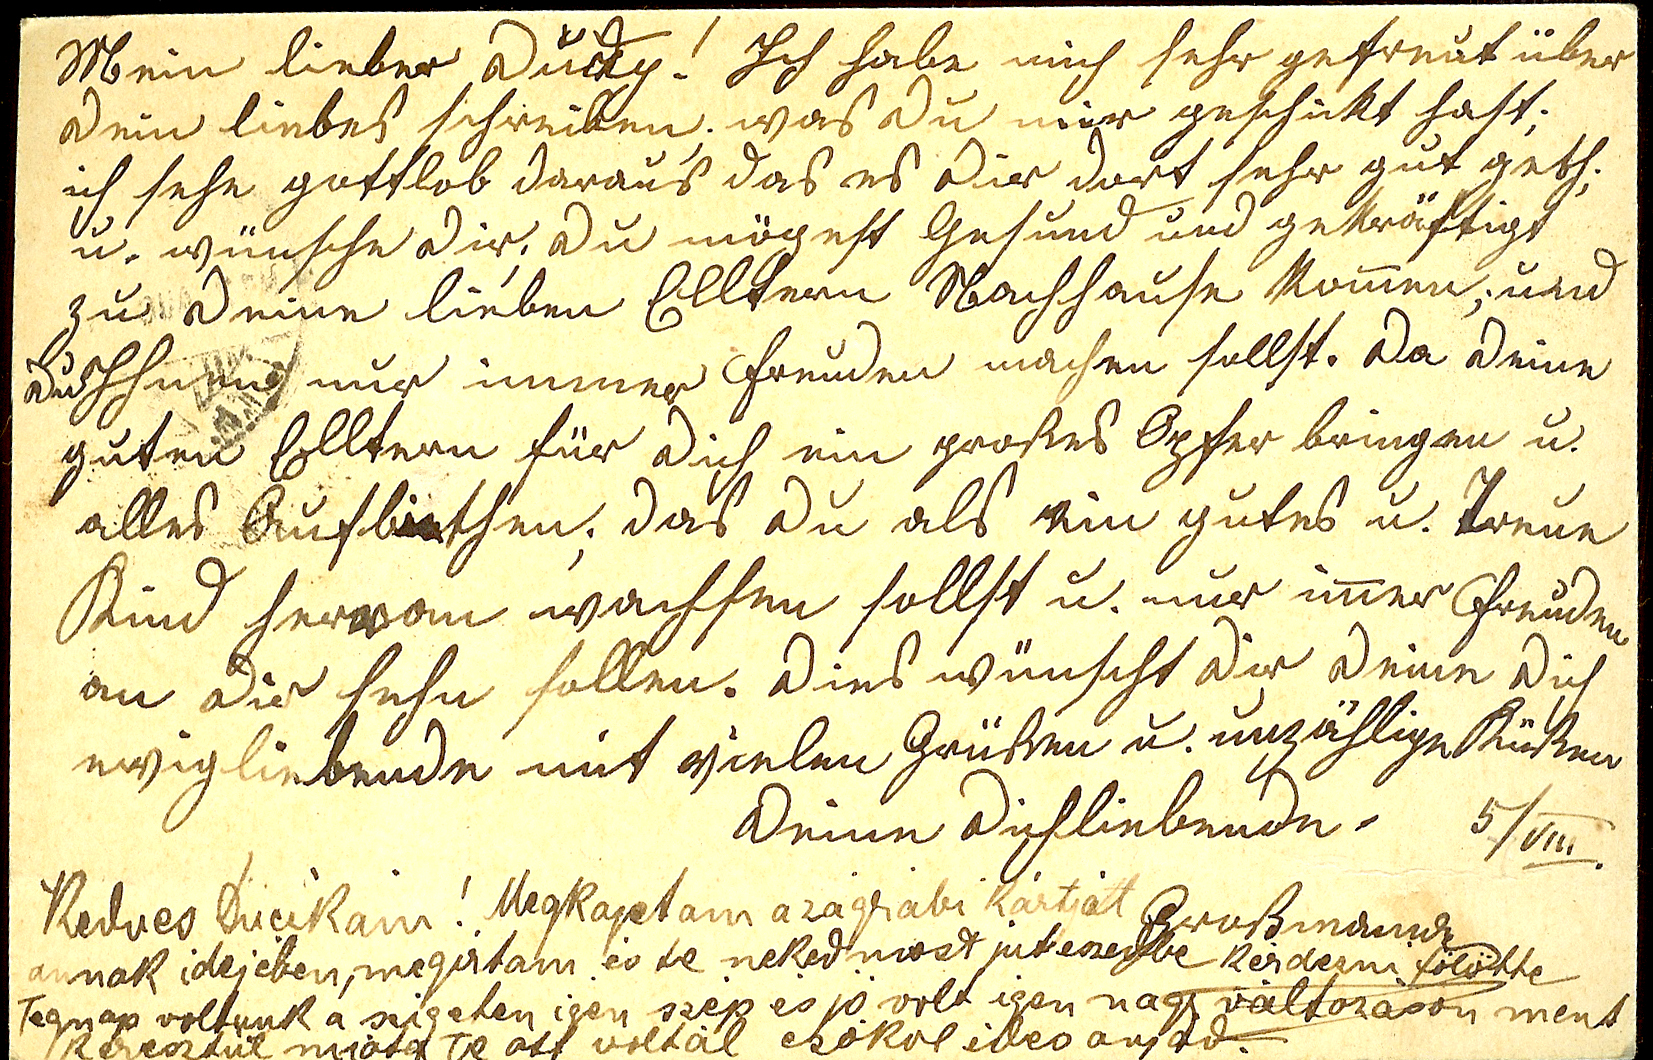 Mein lieber Duczy! Ich habe mich sehr gefreut über
Dein liebes schreiben, was Du mir geschikt hast,
ich sehe gottlob daraus das es Dir dort sehr gut geth,
u. wünsche Dir, Du mögest Gesund und gekräftigt
zu Deine lieben Elltern Nachhause kom̅en, und
Du Ihnen nur immer Freuden machen sollst. Da Deine
guten Elltern für Dich ein großes Opfer bringen u.
alles Aufbiethen, das Du als ein gutes u. Treue
Kind heran wachsen sollst u. nur im̅er Freuden
an Dir sehn sollen. Dies wünscht Dir Deine Dich
ewigliebende mit vielen Grüssen u. unzählige Küßen
Deine Dichliebende.
5/VIII.
Großmama
Kedves Ducikám! Megkaptam a zágrábi kártját
annak idejében, megirtam és te neked most jut eszedbe kérdezni fölötte
Tegnap voltunk a szigeten igen szép és jó volt igen nagy változáson ment
keresztül mióta Te ott voltál csókol édes anyád.